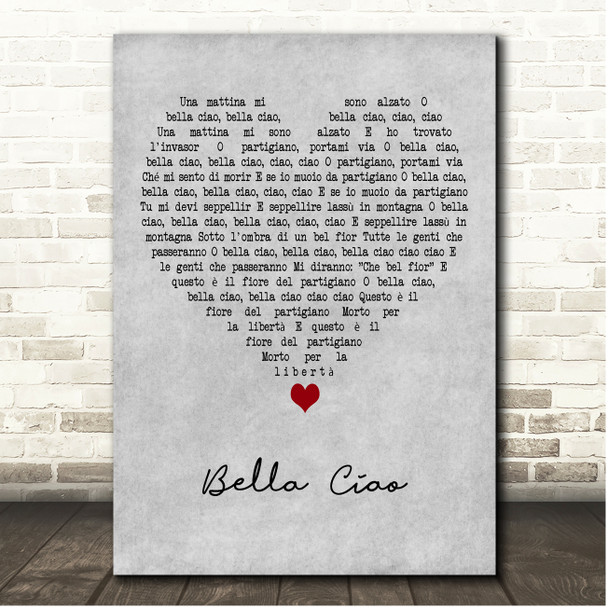 Una mattina mi sono alzato O
bella ciao, bella ciao, bella ciao, ciao, ciao
Una mattina mi sono alzato E ho trovato
l'invasor O partigiano, portami via O bella ciao,
bella ciao, bella ciao, ciao, ciao O partigiano, portami via
Ché mi sento di morir E se io muoio da partigiano O bella ciao,
bella ciao, bella ciao, ciao, ciao E se io muoio da partigiano
Tu mi devi seppellir E seppellire lassù in montagna O bella
ciao, bella ciao, bella ciao, ciao, ciao E seppellire lassù in
montagna Sotto l'ombra di un bel fior Tutte le genti che
passeranno O bella ciao, bella ciao, bella ciao ciao ciao E
le genti che passeranno Mi diranno: "Che bel fior" E
questo è il fiore del partigiano O bella ciao,
bella ciao, bella ciao ciao ciao Questo è il
fiore del partigiano Morto per
la libertà E questo è il
fiore del partigiano
Morto per la
libertà
Bella Ciao